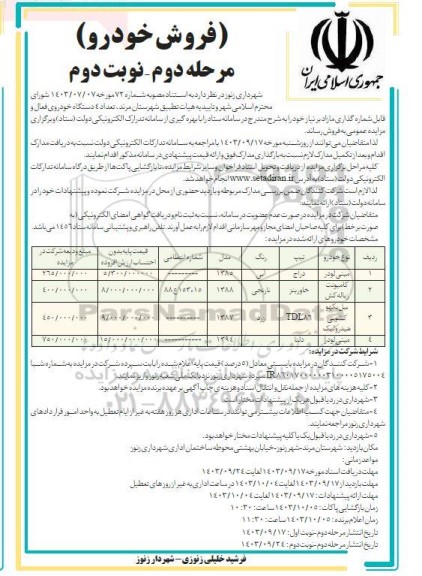 (فروش خودرو)
مرحله دوم - نوبت دوم
جمهوری اسلامی ایران
شهرداری زنوز در نظر دارد به استناد مصوبه شماره ۷۲ مورخه ۱۴۰۳/۰۷/۰۷ شورای
محترم اسلامی شهر و تایید به هیات تطبیق شهرستان مرند، تعداد ۴ دستگاه خودروی فعال و
قابل شماره گذاری مازاد بر نیاز خود را به شرح مندرج در سامانه ستاد را با بهره گیری از سامانه تدارک الکترونیکی دولت (ستاد) و برگزاری
مزایده عمومی به فروش رساند.
لذا متقاضیان می توانند از روز شنبه مورخه ۱۴۰۳/۰۹/۱۷ با مراجعه به سامانه تدارکات الکترونیکی دولت نسبت به دریافت مدارک
اقدام و بعد از تکمیل مدارک لازم نسبت به بارگذاری مدارک فوق و ارائه قیمت پیشنهادی در سامانه مذکور اقدام نمایند.
کلیه مراحل برگزاری مزایده از دریافت و تحویل اسناد فراخوان، سایر شرایط مزایده، تا بازگشایی پاکت ها از طریق درگاه سامانه تدارکات
الکترونیکی دولت (ستاد) به آدرس www.setadiran.ir انجام خواهد شد.
لذا لازم است شرکت کنندگان ضمن بررسی مدارک مربوطه و بازدید حضوری از محل در مزایده شرکت نموده و پیشنهادات خود را در
سامانه دولت (ستاد) ارائه نمایند.
متقاضیان شرکت در مزایده در صورت عدم عضویت در سامانه، نسبت به ثبت نام و دریافت گواهی امضای الکترونیکی (به
صورت برخط) برای کلیه صاحبان امضای مجاز و مهر سازمانی اقدام لازم را به عمل آورند. تلفن راهبری و پشتیبانی سامانه ستاد ۱۴۵۶ می باشد.
مشخصات خودروهای ارائه شده در مزایده:
ردیف نوع خودرو تیپ رنگ مدل شماره انتظامی قیمت پایه بدون احتساب ارزش افزوده مبلغ ودیعه شرکت در مزایده
۱ مینی لودر دراج آبی ۱۳۸۵ ---------- ۵/۳۰۰/۰۰۰/۰۰۰ ۲۶۵/۰۰۰/۰۰۰
۲ کامیونت زباله کش خاورینز نارنجی ۱۳۸۸ ۸/۰۰۰/۰۰۰/۰۰۰ ۴۰۰/۰۰۰/۰۰۰
۳ هیدرولیک زرد ۱۳۸۷ ---------- ۹/۰۰۰/۰۰۰/۰۰۰ ۴۵۰/۰۰۰/۰۰۰
۴ مینی لودر دلتا ۱۳۹۴ ---------- ۱۵/۰۰۰/۰۰۰/۰۰۰ ۷۵۰/۰۰۰/۰۰۰
شرایط شرکت در مزایده:
۱- شرکت کنندگان در مزایده بایستی معادل (۵ درصد) قیمت پایه اعلام شده را بابت سپرده شرکت در مزایده به شماره شبا
۲- کلیه هزینه های مزایده از جمله نقل و انتقال اسناد و هزینه ی چاپ آگهی بر عهده برنده مزایده خواهد بود.
۳- شهرداری در رد یا قبول هر یک از پیشنهادات مختار است.
۴- متقاضیان جهت کسب اطلاعات بیشتر می توانند در ساعات اداری هر روز هفته به غیر از ایام تعطیل به واحد امور قراردادهای
شهرداری زنوز مراجعه نمایند.
۵- شهرداری در رد یا قبول یک یا کلیه پیشنهادات مختار خواهد بود.
مکان بازدید: شهرستان مرند- شهر زنوز- خیابان بهشتی محوطه ساختمان اداری شهرداری زنوز
مواعد زمانی:
مهلت دریافت اسناد مورخه ۱۴۰۳/۰۹/۱۷ لغایت ۱۴۰۳/۰۹/۲۴
مهلت بازدید از ۱۴۰۳/۰۹/۱۷ لغایت ۱۴۰۳/۱۰/۰۴ در ساعت اداری به غیر از روز های تعطیل
مهلت ارائه پیشنهادات: ۱۴۰۳/۰۹/۱۷ لغایت ۱۴۰۳/۱۰/۰۴
زمان بازگشایی پاکات: ۱۴۰۳/۱۰/۰۵ ساعت: ۱۰:۳۰
زمان اعلام برنده: ۱۴۰۳/۱۰/۰۵ ساعت: ۱۱:۳۰
تاریخ انتشار مرحله دوم- نوبت اول: ۱۴۰۳/۰۹/۱۷
تاریخ انتشار مرحله دوم- نوبت دوم: ۱۴۰۳/۰۹/۲۴
فرشید خلیلی زنوزی - شهردار زنوز